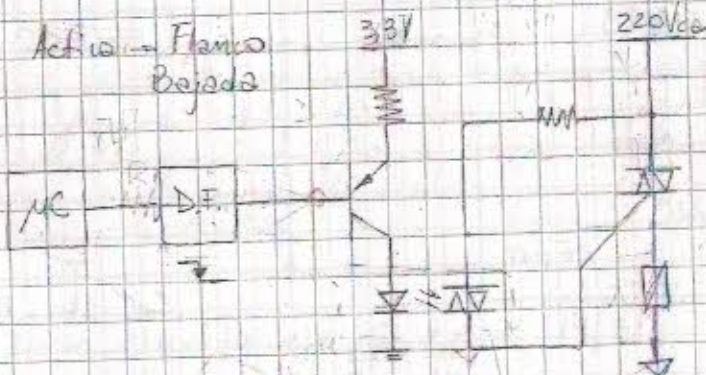 Activo → Flanco
Bajada
3,3V
220Vca
μC
D.F.